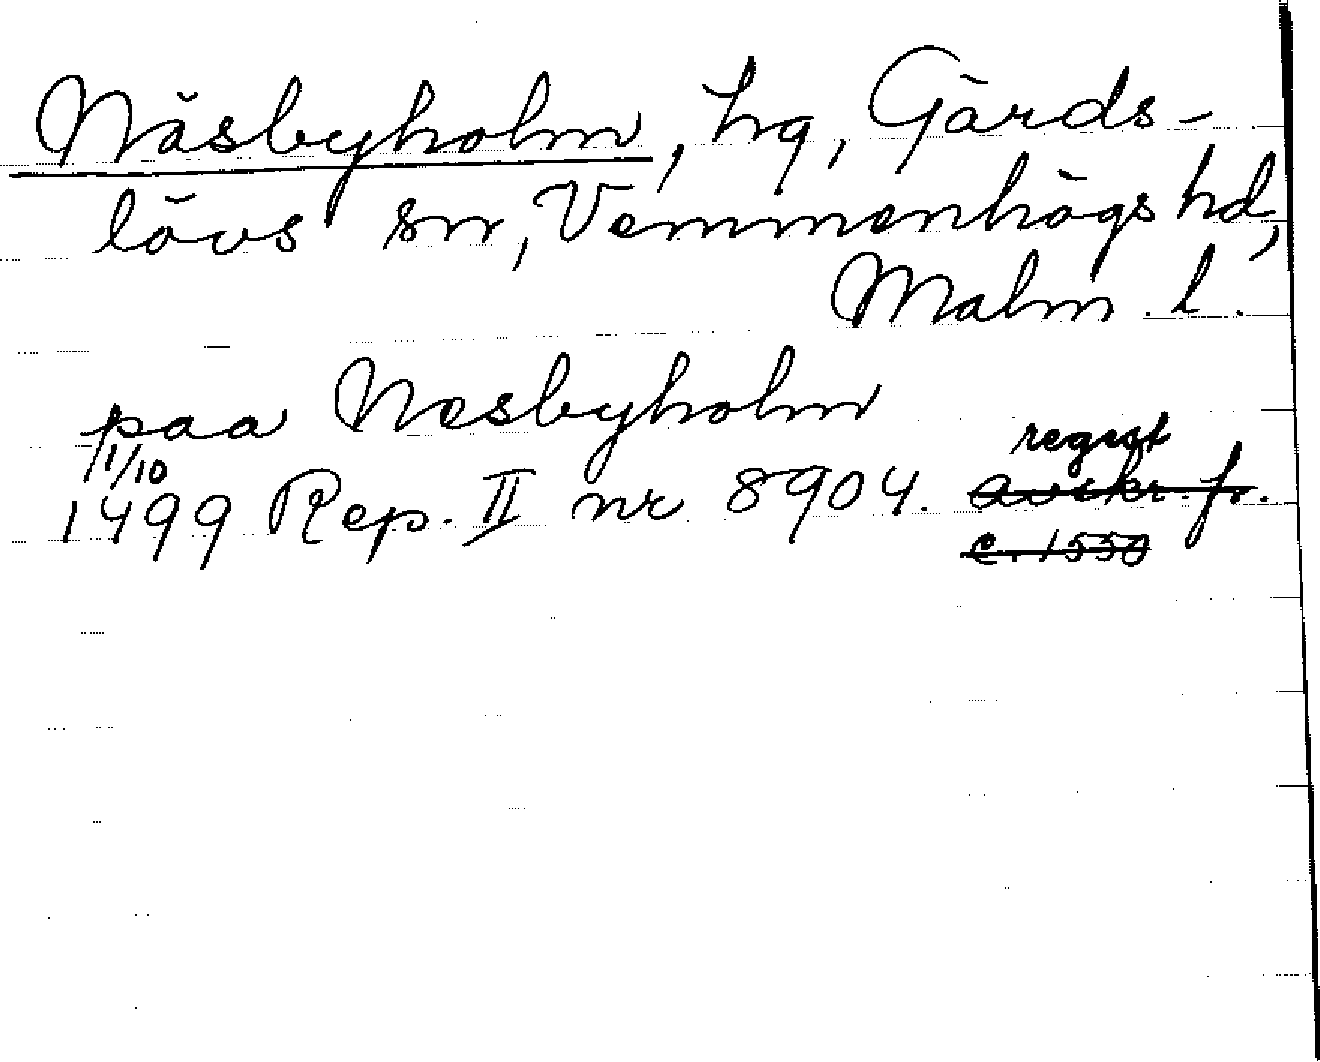 Näsbyholm, hg, Gärds-
lövs sn, Vemmenhögs hd,
Malm. l.
paa Næsbyholm
1/10
1499 Rep. II nr 8904. regest
avskr. fr.
c. 1550